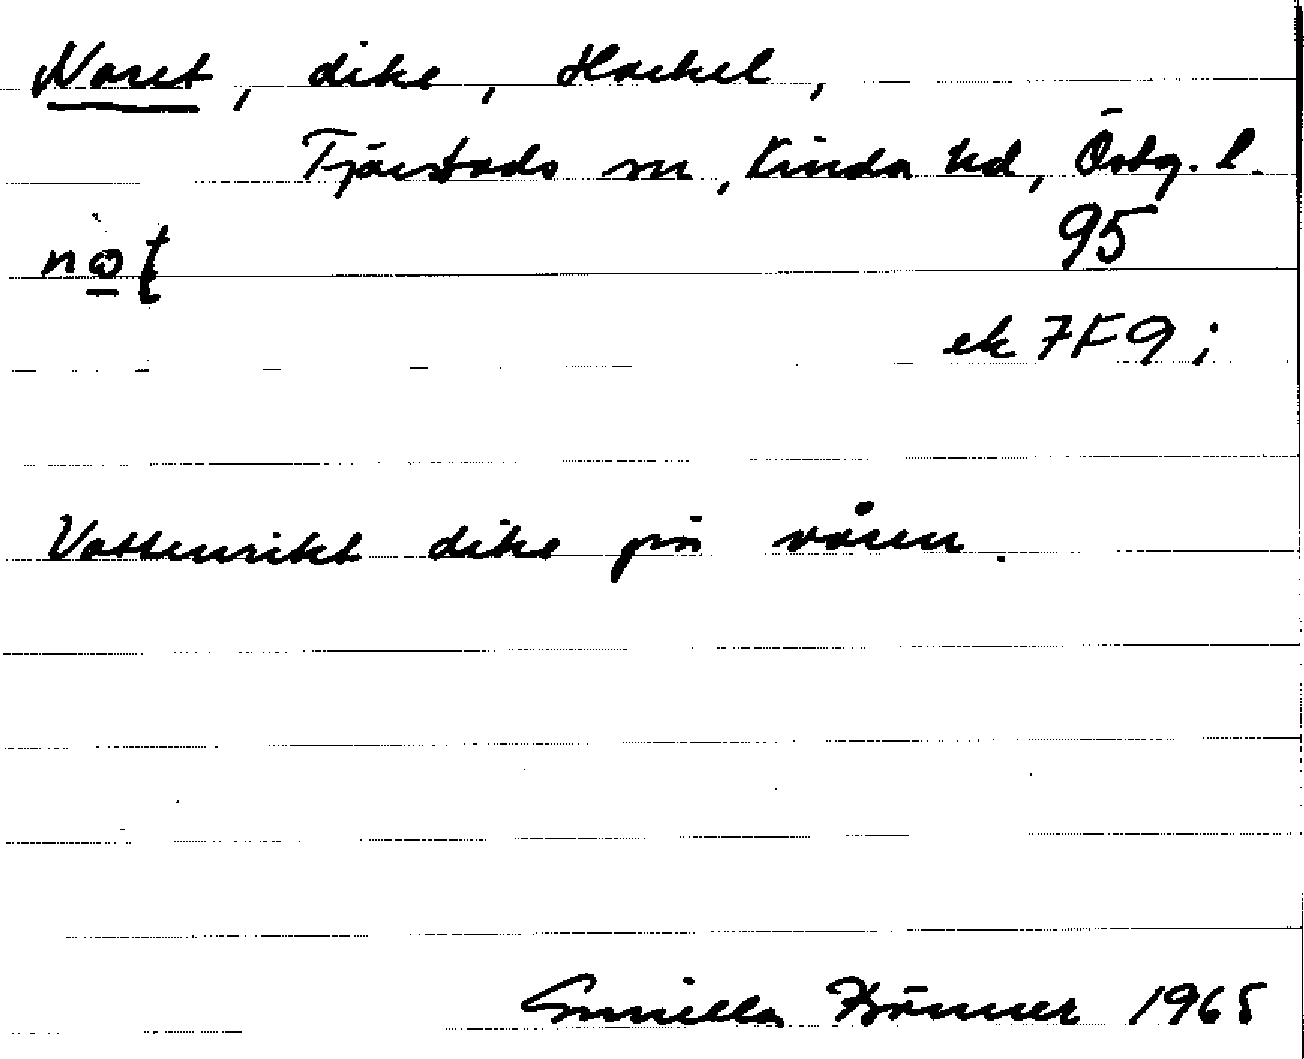 Noret, dike, Hackel,
Tjärstads sn, Kinda hd, Östg. l.
95
ek 7F9i
Vattenrikt dike på våren.
Gunilla 1965